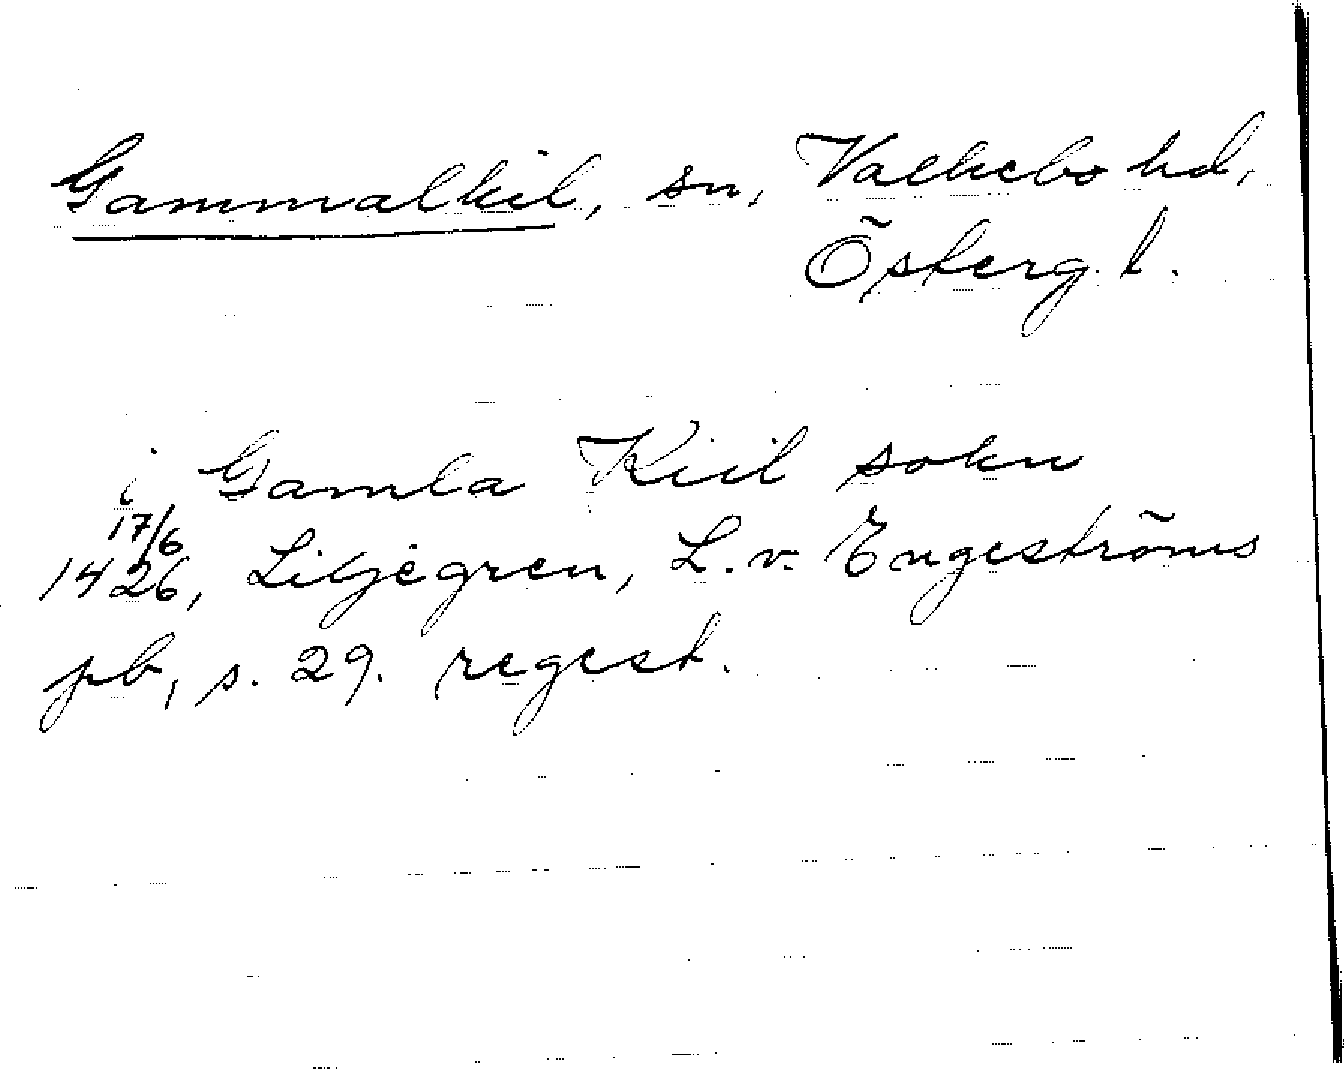 Gammalkil, sn, Valkebo hd,
Österg. l.
i Gamla Kiil sokn
17/6
1426, Liljegren, L. v. Engeströms
pb, s. 29. regest.